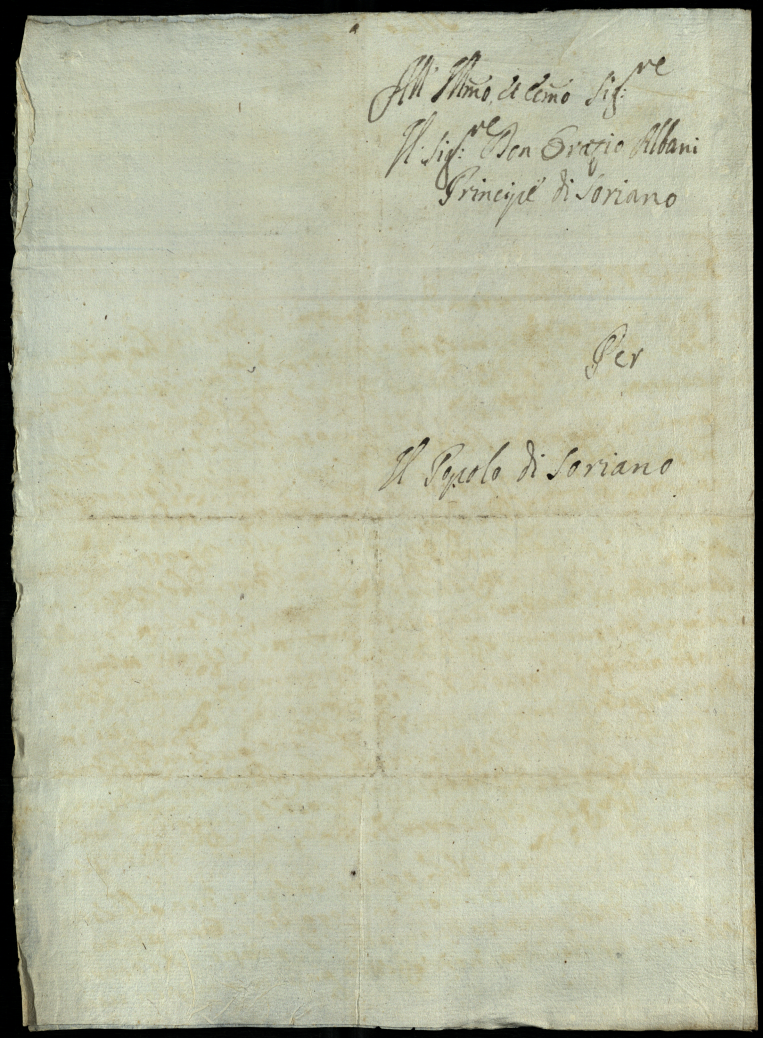 All' Ill͞mo, et Ecc͞mo Sig:re
Il Sig:re Don Orazio Albani
Principe di Soriano
Per
Il Popolo di Soriano